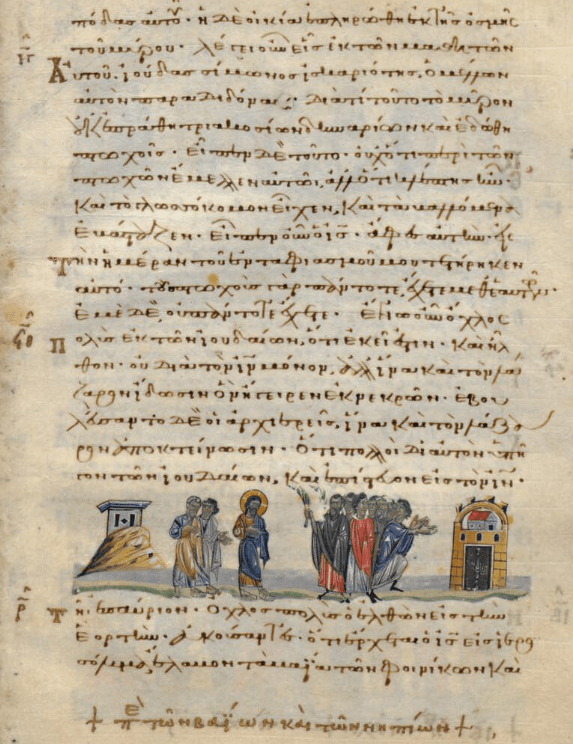 πόδας αὐτοῦ· ἡ δὲ οἰκία ἐπληρώθη ἐκ τῆς ὀσμῆς
τοῦ μύρου· λέγει οὖν εἷς ἐκ τῶν μαθητῶν
Αὐτοῦ. ἰούδας σίμωνος ἰσκαριότης, ὁ μέλλων
αὐτὸν παραδιδόναι· διατί τοῦτο τὸ μύρον
οὐκ ἐπράθη τριακοσίων δηναρίων καὶ ἐδόθη
πτωχοῖς· εἶπεν δὲ τοῦτο· οὐχ ὅτι περὶ τῶν
πτωχῶν ἔμελλεν αὐτῶι, ἀλλ' ὅτι κλέπτης ἦν·
καὶ τὸ γλωσσόκομον εἶχεν, καὶ τὰ βαλλόμενα
ἐβάσταζεν· εἶπεν οὖν ὁ ι̅ς̅· ἄφες αὐτήν· εἰς
Τὴν ἡμέραν τοῦ ἐνταφιασμοῦ μου τετήρηκεν
αὐτό· τοὺς πτωχοὺς γὰρ πάντοτε ἔχετε μεθ' ἑαυτῶν·
ἐμὲ δὲ, οὐ πάντοτε ἔχετε· Ἔγνω οὖν ὄχλος
Πολὺς ἐκ τῶν ἰουδαίων, ὅτι ἐκεῖ ἐστιν· καὶ ἦλ
θον· οὐ διὰ τὸν ι̅ν̅ μόνον, ἀλλ' ἵνα καὶ τὸν λά
ζαρον ἴδωσιν ὃν ἤγειρεν ἐκ νεκρῶν· ἐβου
λεύσαντο δὲ οἱ ἀρχιερεῖς, ἵνα καὶ τὸν λάζα
ρον ἀποκτείνωσιν· ὅτι πολλοὶ δι' αὐτὸν ὑπῆ
γον τῶν ἰουδαίων, καὶ ἐπίστευον εἰς τὸν ι̅ν̅·
Τῇ ἐπαύριον· ὄχλος πολὺς ὁ ἐλθὼν εἰς τὴν
ἑορτήν· ἀκούσαντες· ὅτι ἔρχεται ὁ ι̅ς̅ εἰς ἱερο
σόλυμα, ἔλαβον τὰ βαΐα τῶν φοινίκων καὶ
+ τῶν βαΐων καὶ τῶν νηπίων +